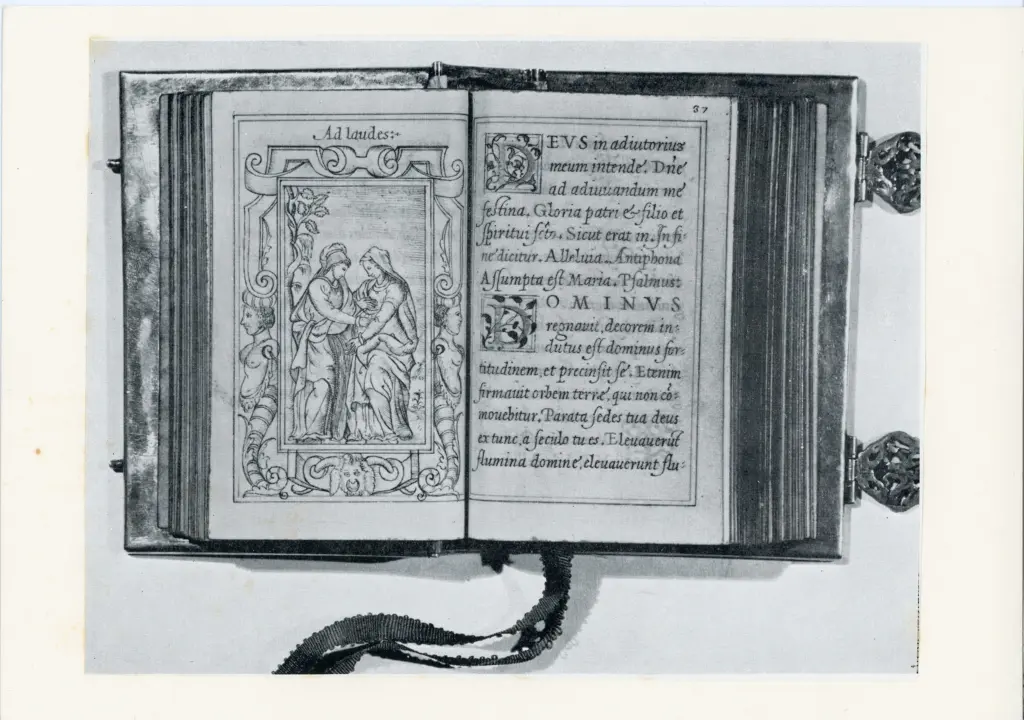 Ad laudes:
37
DEVS in adiutoriuʒ
meum intende. Dñe
ad adiuuandum me
festina. Gloria patri & filio et
spiritui scto. Sicut erat in. In fi-
ne dicitur. Alleluia. Antiphona
Assumpta est Maria. Psalmus:
DOMINVS
regnauit, decorem in-
dutus est dominus for-
titudinem, et precinsit se. Etenim
firmauit orbem terre, qui non cō-
mouebitur. Parata sedes tua deus
ex tunc, a seculo tu es. Eleuauerūt
flumina domine, eleuauerunt flu-